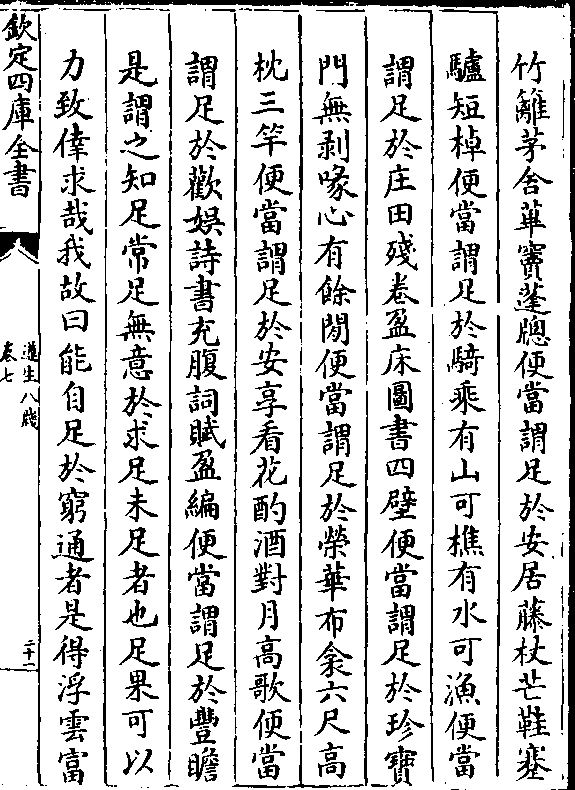 竹籬茅舍蓽竇蓬牕便當謂足於安居藤杖芒鞋蹇
驢短棹便當謂足於騎乘有山可樵有水可漁便當
謂足於庄田殘卷盈床圖書四壁便當謂足於珍寶
門無剥啄心有餘閒便當謂足於榮華布衾六尺高
枕三竿便當謂足於安享看花酌酒對月高歌便當
謂足於歡娱詩書充腹詞賦盈編便當謂足於豐贍
是謂之知足常足無意於求足未足者也足果可以
力致倖求哉我故曰能自足於窮通者是得浮雲富
欽定四庫全書
遵生八牋
卷七
二十一